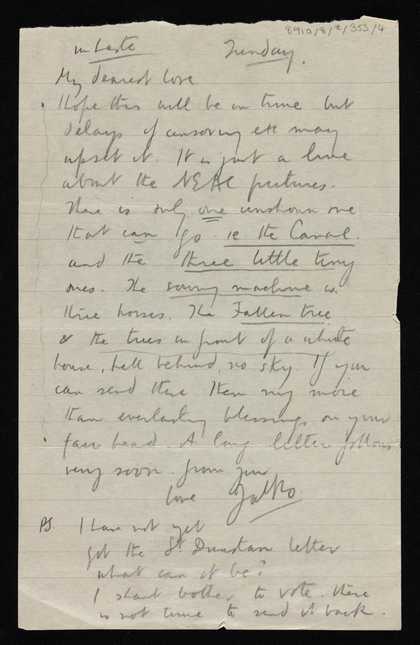 8910/8/2/353/4
in haste Sunday.
My dearest love
Hope this will be in time but
delays of censoring etc may
upset it. It is just a line
about the NEAC pictures.
There is only one unshown one
that can go. ie the Canal.
and the three little tiny
ones. The sowing machine is
three horses. The Fallen tree
& the trees in front of a white
house, hill behind, no sky. If you
can send these then my more
than everlasting blessings on your
fair head. A long letter follows
very soon. from your
love
PS. I have not yet
got the St Dunstan letter
what can it be?
I shant bother to vote. there
is not time to send it back.